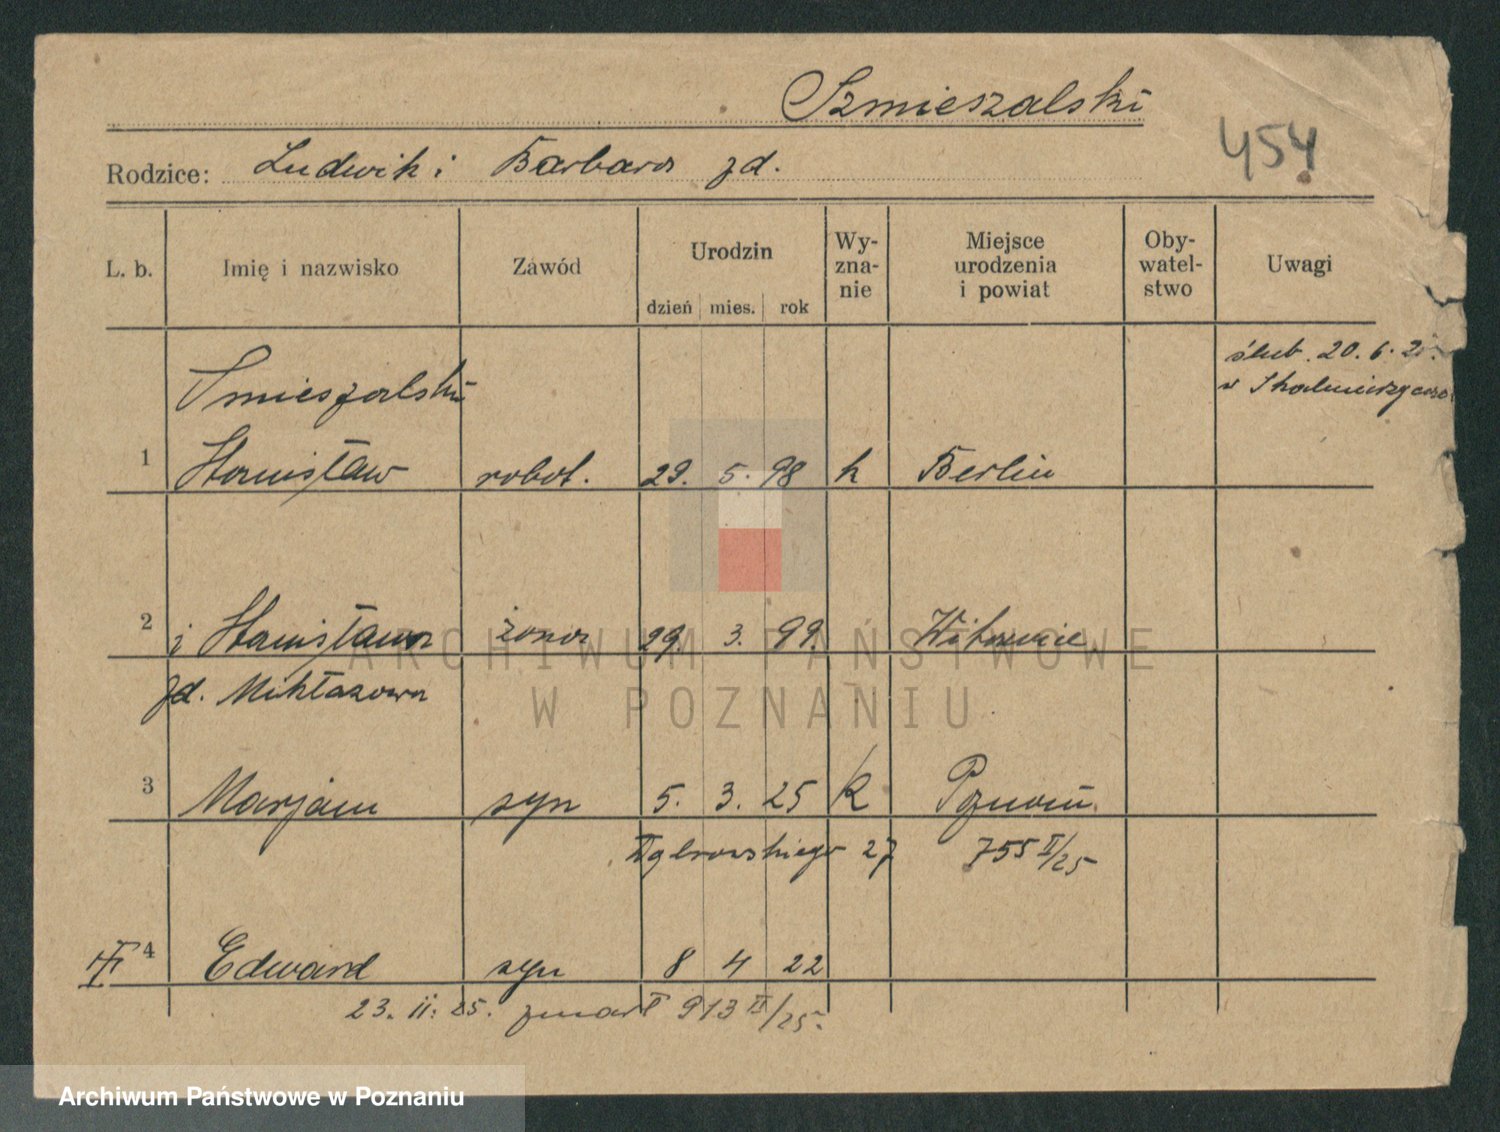 Szmieszalski
454
Rodzice: Ludwik i Barbara zd.
L. b. Imię i nazwisko Zawód Urodzin Wy- Miejsce Oby- Uwagi
zna- urodzenia watel-
nie i powiat stwo
dzień mies. rok
ślub. 20. 6. 21.
w Skalmierzycach
Smieszalski
1 Stanisław robot. 29. 5. 98 k Berlin
2 i Stanisława żona 29. 3. 99.
zd.
3 Marjan syn 5. 3. 25 k Poznań
Dąbrowskiego 27 755 II/25
4 Edward syn 8 4 22
23. II. 25. zmarł 913 II/25.
ARCHIWUM PAŃSTWOWE
W POZNANIU
Archiwum Państwowe w Poznaniu